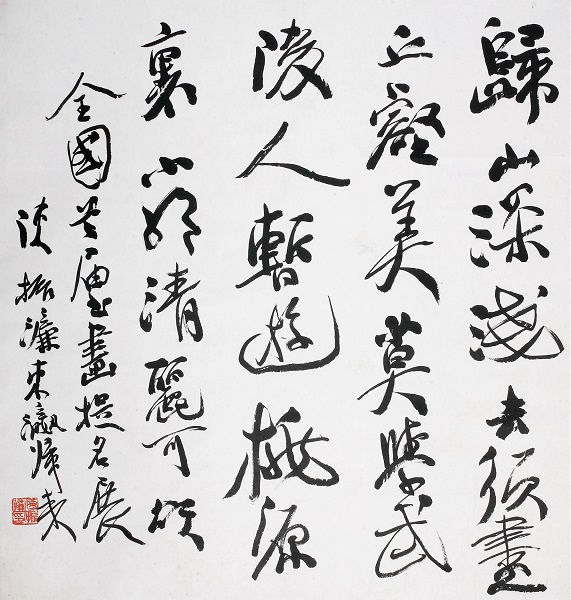 歸山深淺去須盡
丘壑美莫學武
陵人暫遊桃源
裏小詩清麗可頌
全國屆書畫提名展
陳振濂東瀛歸來